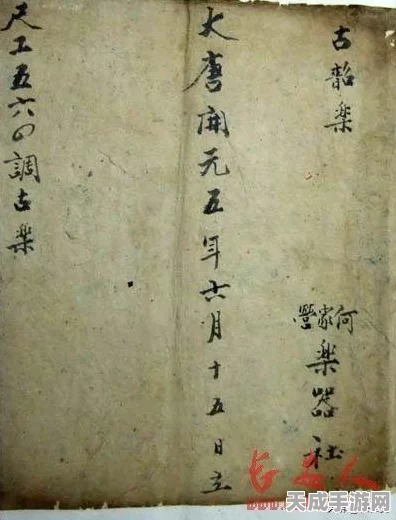 古韶楽
何家營
楽器社
大唐開元五年六月十五日立
尺工五六四調古楽
长安人
天成手游网